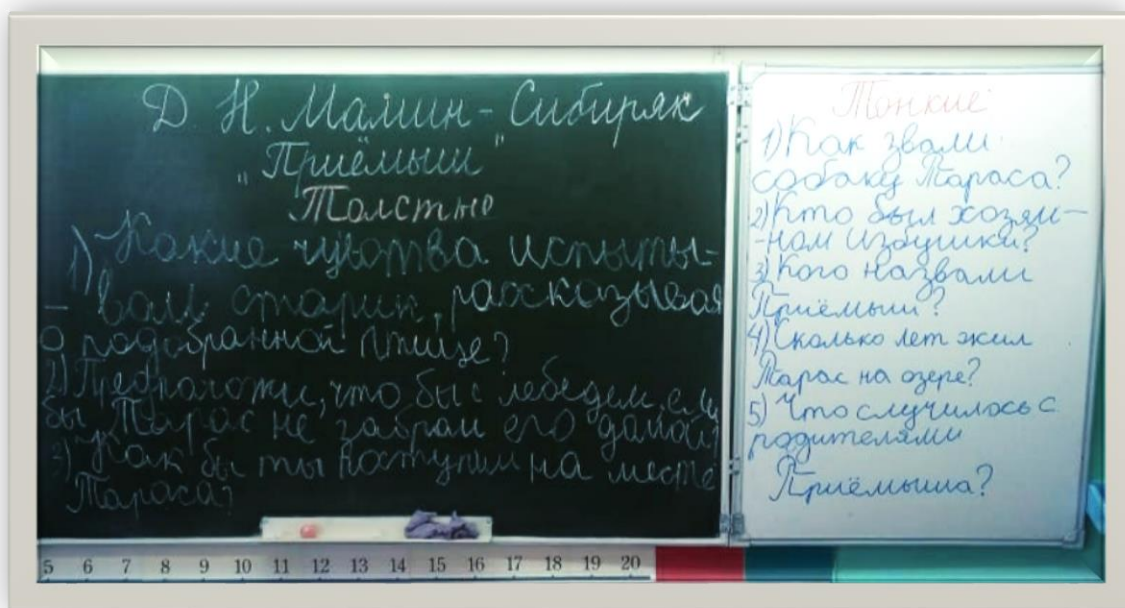 Д Н. Мамин-Сибиряк
"Приёмыш"
Толстые
1) Какие чувства испыты-
- вал старик, рассказывая
о подобранной птице?
2) Предположи, что бы с лебедем, если
бы Тарас не забрал его домой?
3) Как бы ты поступил на месте
Тараса?
Тонкие
1) Как звали
собаку Тараса?
2) Кто был хозяи-
-ном избушки?
3) Кого назвали
Приёмыш?
4) Сколько лет жил
Тарас на озере?
5) Что случилось с
родителями
Приёмыша?
5 6 7 8 9 10 11 12 13 14 15 16 17 18 19 20